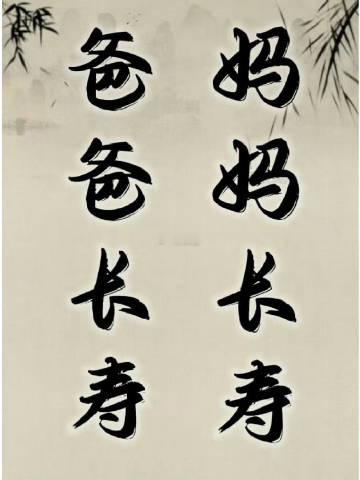 妈妈长寿
爸爸长寿